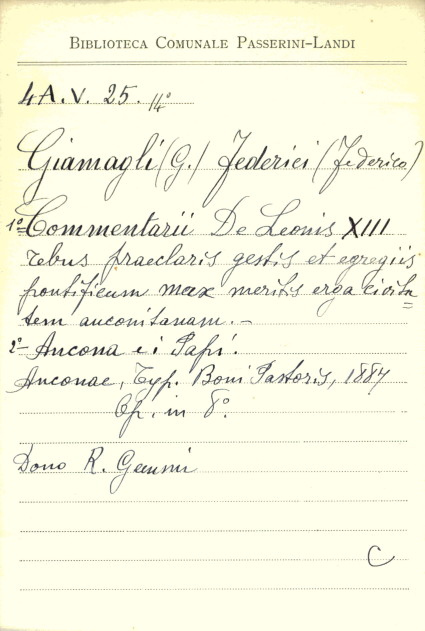 BIBLIOTECA COMUNALE PASSERINI-LANDI
4A.V. 25. 14°
Giamagli (G.) Federici (Federico)
1° Commentarii De Leonis XIII
rebus praeclaris gestis et egregiis
pontificum max meritis erga civita=
tem anconitanam. -
2° - Ancona e i Papi.
Anconae, Typ. Boni Pastoris, 1887
Op. in 8°.
Dono R. Gemmi
C